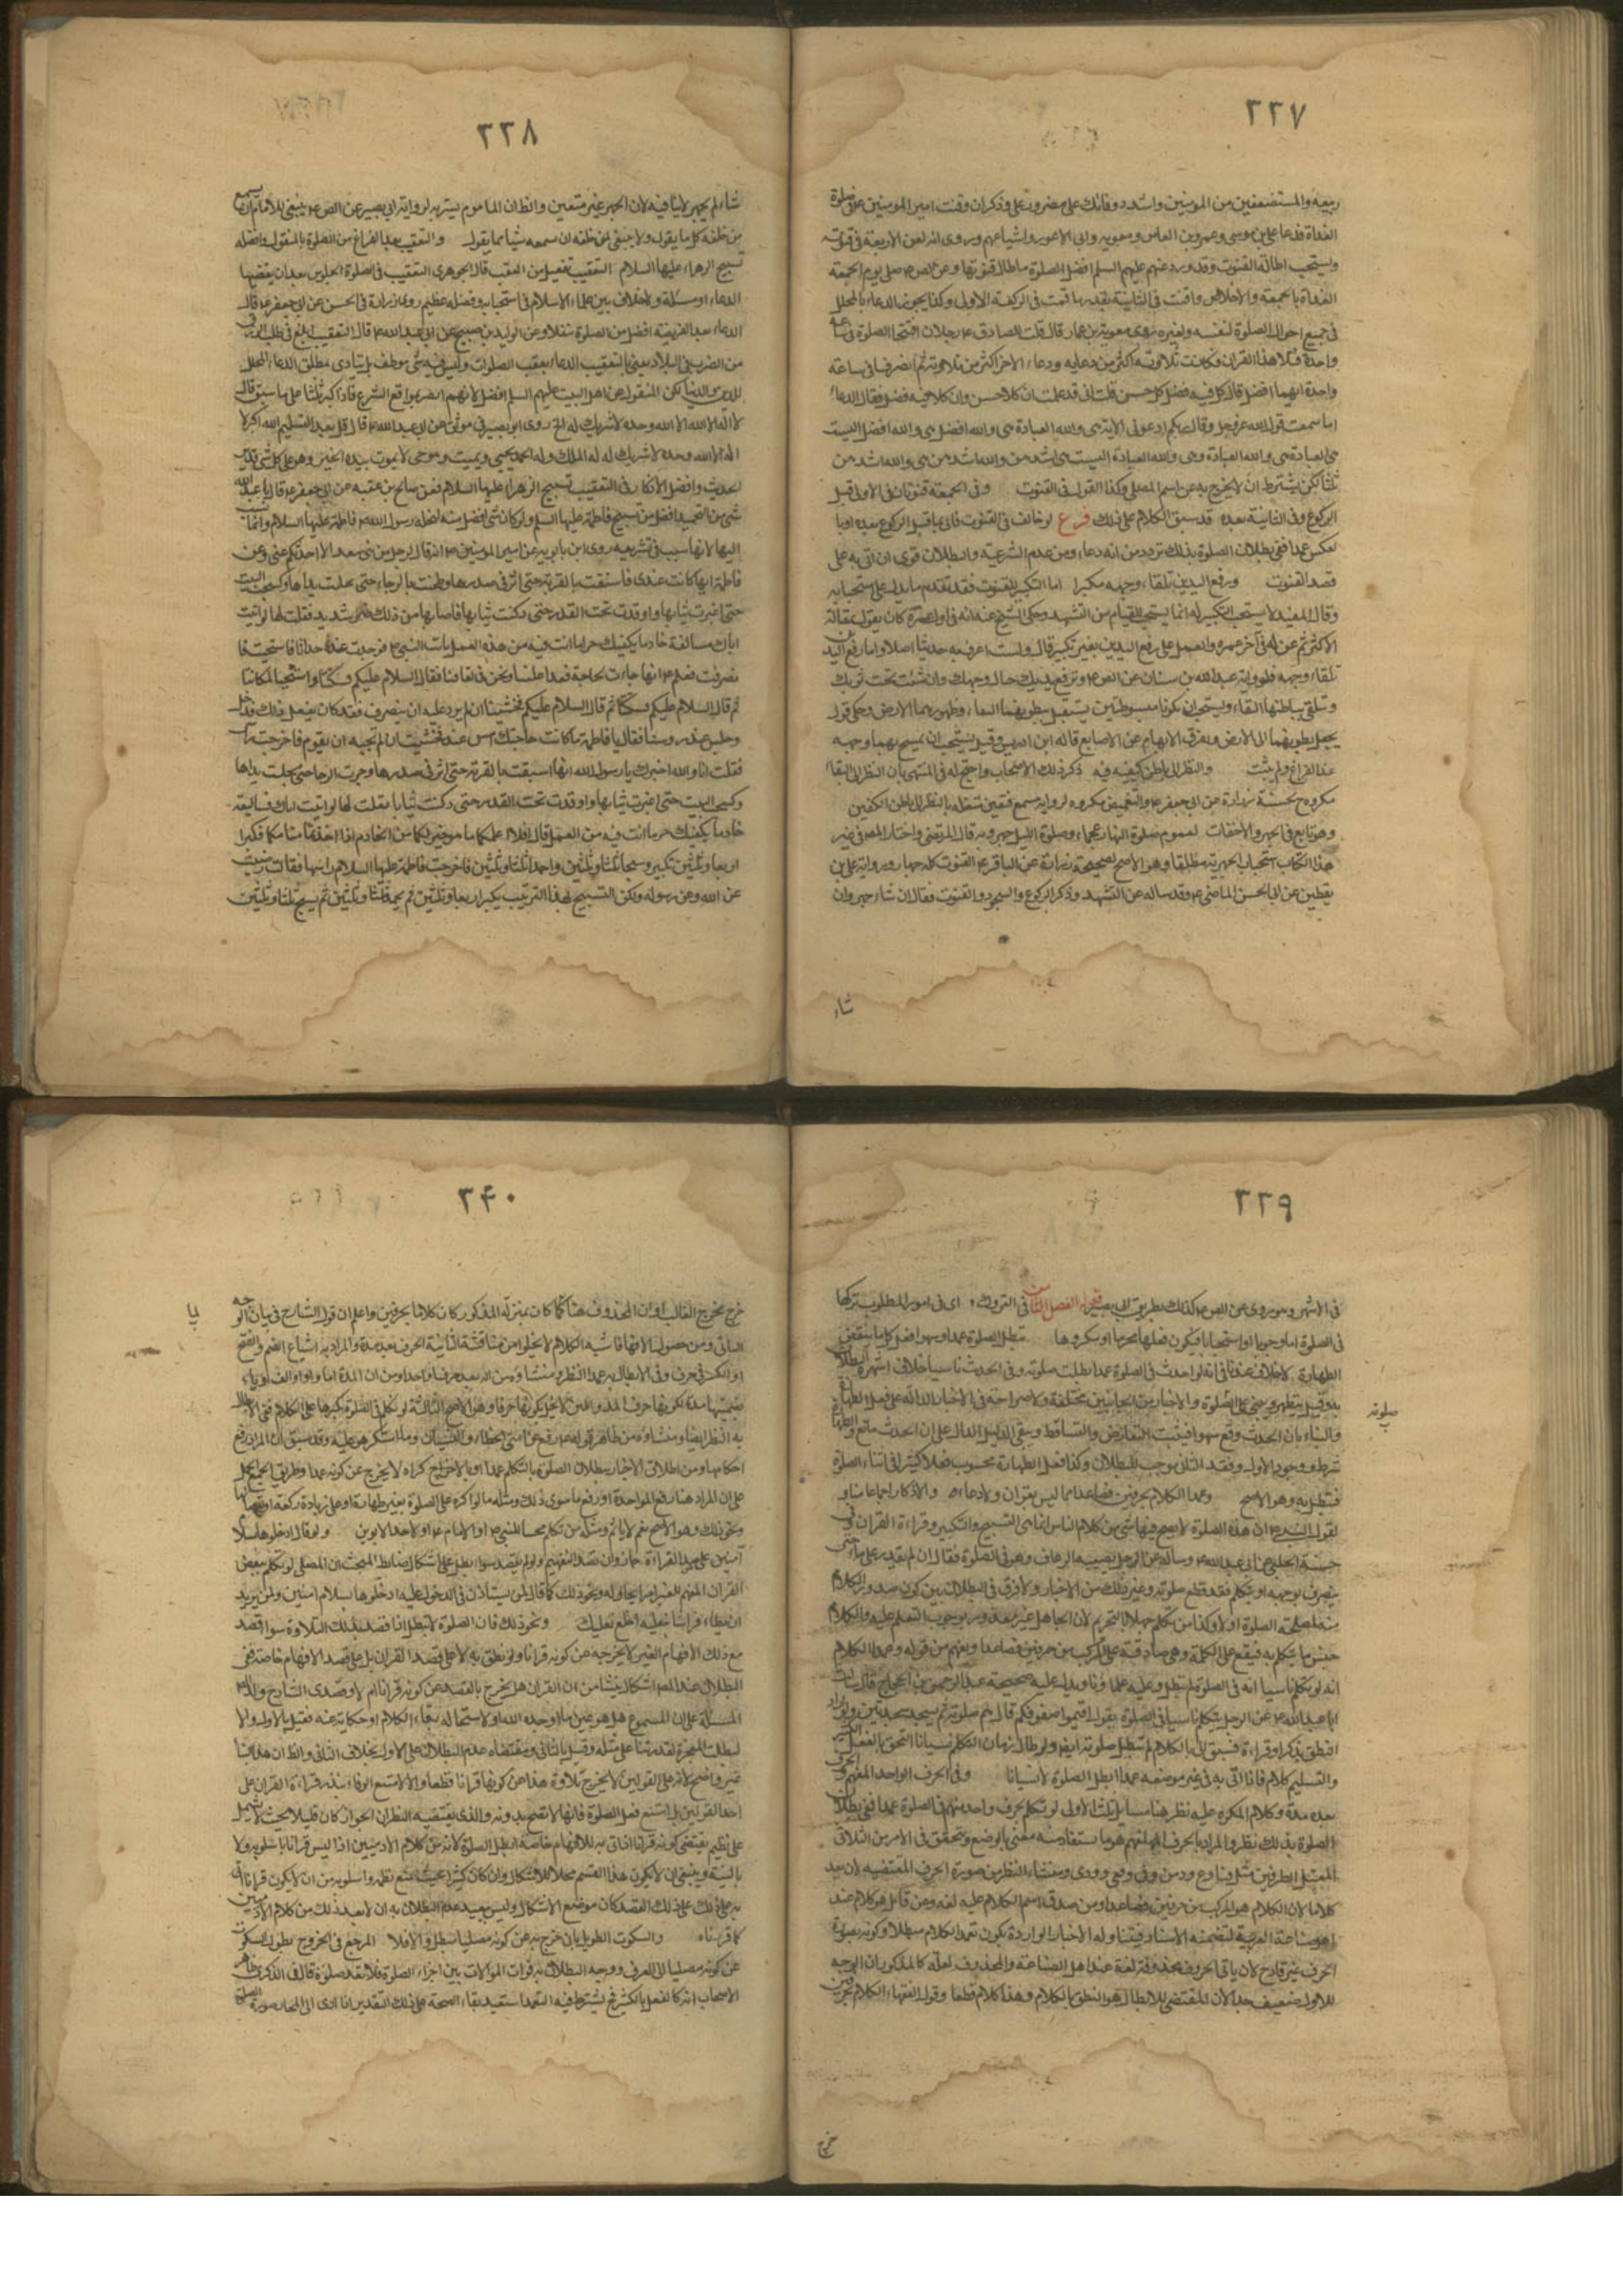 ٢٣٧
ربيعه والمستضعفين من المؤمنين واشدد وطاتك على مضر ورعل وذكوان وقنت امير المؤمنين ع في صلوة
الغداة فدعا على ابى موسى وعمرو بن العاص ومعويه وابى الاعور واشياعهم وروى انه لعن الاربعة فى قنوته
ويستحب اطالة القنوت وقد ورد عنهم عليهم السلم افضل الصلوة ما طال قنوتها وعن الص ع صلى يوم الجمعة
الغداة بالجمعة والاخلاص وقنت فى الثانية بقدر ما قنت فى الركعة الاولى وكذا يجوز الدعاء بالمحلل
فى جميع احوال الصلوة لنفسه ولغيره روى معوية بن عمار قال قلت للصادق ع رجلان افتتحا الصلوة فى ساعة
واحدة فتلا هذا القران وكانت تلاوته اكثر من دعايه ودعاء الاخر اكثر من تلاوته ثم انصرفا فى ساعة
واحدة ايهما افضل قال كل فيه فضل كل حسن قلت انى قد علمت ان كلا حسن وان كلا فيه فضل فقال الدعاء
اما سمعت قول الله عز وجل وقال ربكم ادعونى الاية هى والله العبادة هى والله افضل هى والله افضل اليست
هى العبادة هى والله العبادة هى والله العبادة اليست هى اشدهن والله اشدهن هى والله اشدهن
ثلثا لكن يشترط ان لا يخرج به عن اسم المصلى وكذا القول فى القنوت وفى الجمعة قنوتان فى الاولى قبل
الركوع وفى الثانية بعده قد سبق الكلام على ذلك فرع لو خالف فى القنوت فاتى بما قبل الركوع بعده او با
لعكس عمدا ففى بطلان الصلوة بذلك تردد من انه دعاء ومن عدم الشرعية والبطلان قوى ان اتى به على
قصد القنوت ورفع اليدين تلقاء وجهه مكبرا اما التكبير للقنوت فقد تقدم ما يدل على استحبابه
وقال المفيد لا يستحب التكبير له انما يستحب للقيام من التشهد وحكى الشيخ عنه انه فى اول عمره كان يقول بمقالة
الاكثر ثم عن له فى آخر عمره والعمل على رفع اليدين بغير تكبير قال ولست اعرف به حديثا اصلا واما رفع اليدين
تلقاء وجهه فلرواية عبدالله بن سنان عن الص ع وترفع يديك حيال وجهك وان شئت تحت ثوبك
وتتلقى بباطنهما السماء ويستحب ان يكونا مبسوطتين يستقبل ببطونهما السماء وظهورهما الارض وحكى قول
بجعل بطونهما الى الارض وتفرق الابهام عن الاصابع قاله ابن ادريس وقيل يستحب ان يمسح بهما وجهه
عند الفراغ ولم يثبت والنظر الى باطن كفيه فيه ذكر ذلك الاصحاب واحتج له فى المنتهى بان النظر الى السماء
مكروه لحسنة زرارة عن ابى جعفر ع والتغميض مكروه لرواية مسمع فتعين شغله بالنظر الى باطن الكفين
وهو تابع فى الجهر والاخفات لعموم صلوة النهار عجماء وصلوة الليل جهر وبه قال المرتضى واختار المصـ فى غير
هذا الكتاب استحباب الجهر به مطلقا وهو الاصح لصحيحة زرارة عن الباقر ع القنوت كله جهار ورواية على بن
يقطين عن ابى الحسن الماضى ع وقد ساله عن التشهد وذكر الركوع والسجود والقنوت فقال ان شاء جهر وان
شاء
٢٣٨
شاء لم يجهر لا ينافيه لان الجهر غير متعين والظ ان الماموم يسر به لرواية ابى بصير عن الص ع ينبغى للامام ان يسمع
من خلفه كل ما يقول ولا ينبغى لمن خلفه ان يسمعه شيئا مما يقول والتعقيب بعد الفراغ من الصلوة بالمنقول وافضله
تسبيح الزهراء عليها السلام التعقيب تفعيل من العقب قال الجوهرى التعقيب فى الصلوة الجلوس بعد ان يقضيها
لدعاء او مسئلة ولا خلاف بين علماء الاسلام فى استحبابه وفضله عظيم روى زرارة فى الحسن عن ابى جعفر ع قال
الدعاء بعد الفريضة افضل من الصلوة تنفلا وعن الوليد بن صبيح عن ابى عبد الله ع قال التعقيب ابلغ فى طلب الرزق
من الضرب فى البلاد يعنى بالتعقيب الدعاء بعقب الصلوات وليس فيه شى موظف بل يتادى بمطلق الدعاء المحلل
للدين والدنيا لكن المنقول عن اهل البيت عليهم السلم افضل لانهم ابصر بمواقع الشرع فاذا كبر ثلثا على ما سبق قال
لا اله الا الله وحده لا شريك له الخ روى ابو بصير فى موثق عن ابى عبد الله ع قال قل بعد التسليم الله اكبر لا
اله الا الله وحده لا شريك له له الملك وله الحمد يحيى ويميت وهو حى لا يموت بيده الخير وهو على كل شى قدير
الحديث وافضل الاذكار فى التعقيب تسبيح الزهراء عليها السلام فعن صالح بن عقبه عن ابى جعفر ع قال ما عبد الله
شى من التحميد افضل من تسبيح فاطمة عليها السلم ولو كان شى افضل منه لنحله رسول الله ص فاطمة عليها السلام وانما نسب
اليها لانها سبب فى تشريعه روى ابن بابويه عن امير المؤمنين ع انه قال لرجل من بنى سعد الا احدثكم عنى وعن
فاطمة انها كانت عندى فاستقت بالقربة حتى اثر فى صدرها وطحنت بالرحا حتى مجلت يداها وكسحت البيت
حتى اغبرت ثيابها واوقدت تحت القدر حتى دكنت ثيابها فاصابها من ذلك ضر شديد فقلت لها لو اتيت
اباك سالته خادما يكفيك حر ما انت فيه من هذه العمل فاتت النبى ص فوجدت عنده حداثا فاستحيت فا
نصرفت فعلم ع انها جاءت لحاجة فغدا علينا ونحن فى لفاعنا فقال السلام عليكم فسكتنا واستحيينا لمكاننا
ثم قال السلام عليكم فسكتنا ثم قال السلام عليكم فخشينا ان لم نرد عليه ان ينصرف وقد كان يفعل ذلك فدخل
وجلس عند رءوسنا فقال يا فاطمة ما كانت حاجتك امس عند فخشيت ان لم تجبه ان يقوم فاخرجت راسى
فقلت انا والله اخبرك يا رسول الله انها استقت بالقربة حتى اثر فى صدرها وجرت الرحا حتى مجلت يداها
وكسحت البيت حتى اغبرت ثيابها واوقدت تحت القدر حتى دكنت ثيابها فقلت لها لو اتيت اباك فسالتيه
خادما يكفيك حر ما انت فيه من العمل قال افلا اعلمكما ما هو خير لكما من الخادم اذا اخذتما منامكما فكبرا
اربعا وثلثين تكبيره وسبحا ثلثا وثلثين واحمدا ثلثا وثلثين فاخرجت فاطمة عليها السلام راسها فقالت رضيت
عن الله وعن رسوله ولكن التسبيح لهذا الترتيب يكبر اربعا وثلثين ثم يحمد ثلثا وثلثين ثم يسبح ثلثا وثلثين
٢٣٩
فى الاشهر وهو روى عن الص ع كذلك بطريق ابى بصير قوله الفصل الثامن فى التروك اى فى امور المطلوب تركها
فى الصلوة اما وجوبا او استحبابا فيكون فعلها محرما او مكروها تبطل الصلوة عمدا وسهوا فعل كل ما ينقض
الطهارة لا خلاف عندنا فى انه لو احدث فى الصلوة عمدا بطلت صلوته وفى الحدث ناسيا خلاف اشهره البطلان
وقيل يتطهر ويبنى على الصلوة والاخبار من الجانبين مختلفة ولا صراحة فى الاخبار الدالة على فعل الطهارة
صلوته
والبناء بان الحدث وقع سهوا فيثبت التعارض والتساقط ويبقى الدليل الدال على ان الحدث مانع والطهارة
شرط ووجود الاول وفقد الثانى موجب للبطلان وكذا فعل الطهارة محسوب فعلا كثيرا فى اثناء الصلوة
فتبطل به وهو الاصح وعمدا الكلام بحرفين فصاعدا مما ليس بقران ولا دعاء والاذكار اجماعا منا و
لقول النبى ص ان هذه الصلوة لا يصح فيها شى من كلام الناس انما هى التسبيح والتكبير وقراءة القران وفى
حسنة الحلبى عن ابى عبد الله ع وساله عن الرجل يصيبه الرعاف وهو فى الصلوة فقال ان لم يقدر على ماء حتى
ينصرف بوجهه او يتكلم فقد قطع صلوته وغير ذلك من الاخبار ولا فرق فى البطلان بين كون صدور الكلام
منه لمصلحة الصلوة او لا وكذا من تكلم جهلا بالتحريم لان الجاهل غير معذور بوجوب التعلم عليه والكلام
جنس ما يتكلم به فيقع على الكلمة وهى صادقة على المركب من حرفين فصاعدا ويفهم من قوله وعمدا الكلام
انه لو تكلم ناسيا انه فى الصلوة لم تبطل وعليه علماؤنا ويدل عليه صحيحة عبد الرحمن بن الحجاج قال سالت
ابا عبد الله ع عن الرجل يتكلم ناسيا فى الصلوة يقول اقيموا صفوفكم قال يتم صلوته ثم يسجد سجدتين ولو اراد
النطق بذكر او قراءة فسبق لسانه بالكلام لم تبطل صلوته ايضا ولو طال زمان التكلم نسيانا التحق بالفعل الكثير
والتسليم كلام فاذا اتى به فى غير موضعه عمدا ابطل الصلوة لا نسيانا وفى الحرف الواحد المفهم والحرف
بعده مدة وكلام المكره عليه نظر هنا مسايل ثلث الاولى لو تكلم بحرف واحد مفهم فى الصلوة عمدا ففى بطلان
الصلوة بذلك نظر والمراد بالحرف المفهم هو ما يستفاد منه معنى بالوضع ويتحقق فى الامر من الثلاثى
المعتل الطرفين مثل ق وع ود من وقى ووعى وودى ومنشاء النظر من صورة الحرف المقتضيه لان يعد
كلاما لان الكلام هو المركب من حرفين فصاعدا ومن صدق اسم الكلام عليه لغه ومن قابل هو كلام عند
اهل صناعة العربية لتضمنه الاسناد فيتناوله الاخبار الواردة بكون تعمد الكلام مبطلا وكونه بصورة
الحرف غير قادح لان باقى الحروف محذوفة لغة عند اهل الصناعة والمحذوف لعلة كالمذكور ان الوجه
للاول ضعيف جدا لان المقتضى للابطال هو النطق بالكلام وهذا كلام قطعا وقول الفقهاء الكلام بحرفين
خرج
٢٤٠
خرج مخرج الغالب او ان المحذوف هنا لما كان بمنزلة المذكور كان كلاما بحرفين واعلم ان قول الشارح فى بيان الوجه
الثانى ومن حصول الافهام فاشبه الكلام لا يخلو من مناقشة الثانية الحرف بعده مدة والمراد به اشباع الضم والفتح
او الكسر فى حرف وفى الابطال به عمدا النظر ومنشاؤه من انه يعد حرفا واحدا ومن ان المدة اما واو او الف او ياء
يا
وتسميتها مدة لكونها حرف المد واللين لا يخل بكونها حرفا وهو الاصح الثالثة لو تكلم فى الصلوة مكرها على الكلام ففى الابطال
به النظر ايضا ومنشاؤه من ظاهر قوله ص رفع عن امتى الخطاء والنسيان وما استكرهوا عليه وقد سبق ان المراد رفع
احكامها ومن اطلاق الاخبار ببطلان الصلوة بالتكلم عمدا والاكراه لا يخرج عن كونه عمدا وطريق الجمع الحمل
على ان المراد هنا رفع المؤاخذة او رفع ما سوى ذلك ومثله ما لو اكره على الصلوة بغير طهارة او على زيادة ركعة او نقصانها
ونحو ذلك وهو الاصح نعم لا ياثم ومثله من تكلم مجيبا للنبى ص او الامام ع او لاحد الابوين ولو قال ادخلوها بسلام
آمنين على قصد القراءة جاز وان قصد التفهيم ولو لم يقصد سواه بطل على اشكال ضابط المبحث ان المصلى لو تكلم ببعض
القران المفهم للغير امرا يحاوله ونحو ذلك كما قال لمن يستاذن فى الدخول عليه ادخلوها بسلام امنين ولمن يريد
ان يطاء فراشا بنعليه اخلع نعليك ونحو ذلك فان الصلوة لا تبطل اذا قصد بذلك التلاوة سواء قصد
مع ذلك الافهام الغير لا يخرجه عن كونه قرانا ولو نطق به لا على قصد القران بل على قصد الافهام خاصة ففى
البطلان عند المصـ اشكال ينشا من ان القران هل يخرج بالقصد عن كونه قرانا ام لا وصدى الشارح ولد المصـ
المسئلة على ان المسموع هل هو عين ما اوحده الله او لاستحالة بقاء الكلام او حكاية عنه فقيل بالاول والا
لبطلت المعجزة لقدرتنا على مثله وقيل بالثانى ومقتضاه عدم البطلان على الاول بخلاف الثانى والظ ان هذا البنا
غير واضح لانه على القولين لا يخرج بتلاوة هذا عن كونها قرانا قطعا والا لامتنع الوفاء بنذر قراءة القران على
احد القولين بل امتنع فعل الصلوة فانها لا تصح بدونه والذى يقتضيه النظر ان الجواز كان قليلا بحيث لا يشتمل
على نظم يقتضى كونه قرانا اذا اتى به للافهام خاصة ابطل الصلوة لانه من كلام الادميين اذا ليس قرانا باسلوبه ولا
بالنية وينبغى ان لا يكون هذا القسم محلا للاشكال وان كان كثيرا بحيث امتنع نظمه واسلوبه من ان لا يكون قرانا اتى
به على ذلك القصد كان موضع الاشكال وليس ببعيد عدم البطلان به ان لا يعد ذلك من كلام الادميين
كما قررناه والسكوت الطويل بان خرج به عن كونه مصليا مبطل والا فلا المرجع فى الخروج بطول السكوت
عن كونه مصليا الى العرف ووجه البطلان به فوات الموالات بين اجزاء الصلوة فلا تعد صلوة قال فى الذكرى ظاهر
الاصحاب انه كالفعل الكثير فح يشترط فيه التعمد استفيد بقاء الصحة على ذلك التقدير اذا ادى الى انمحاء صورة الصلوة